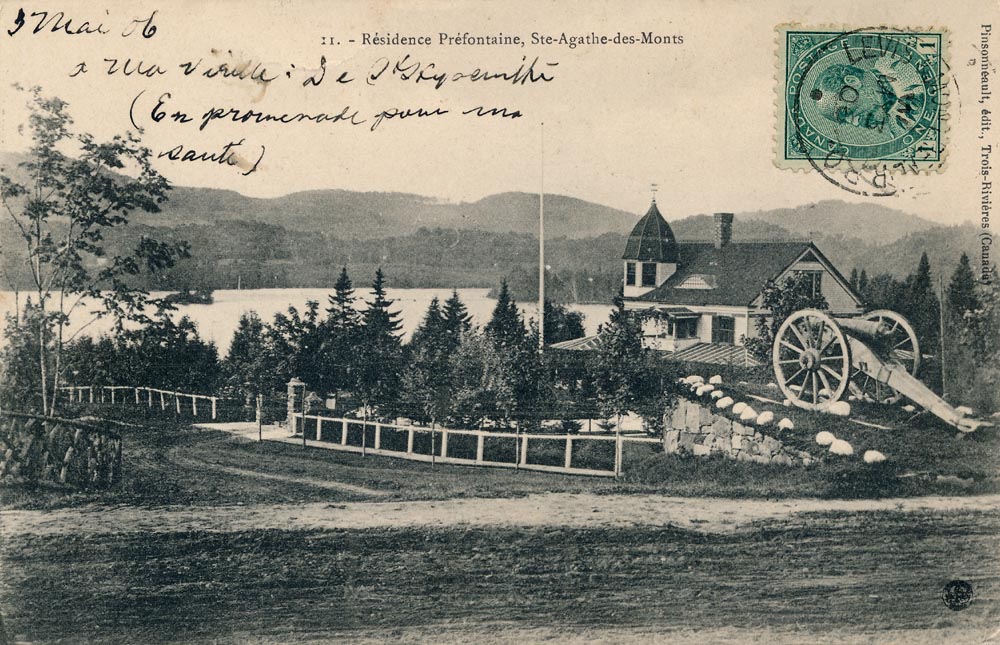 3 Mai 06
11. - Résidence Préfontaine, Ste-Agathe-des-Monts
a Ma Vieille : De St Hyacinthe
(En promenade pour ma
santé)
CANADA POSTAGE
ONE CENT
1
LEVIS
Pinsonneault, édit., Trois-Rivières (Canada)